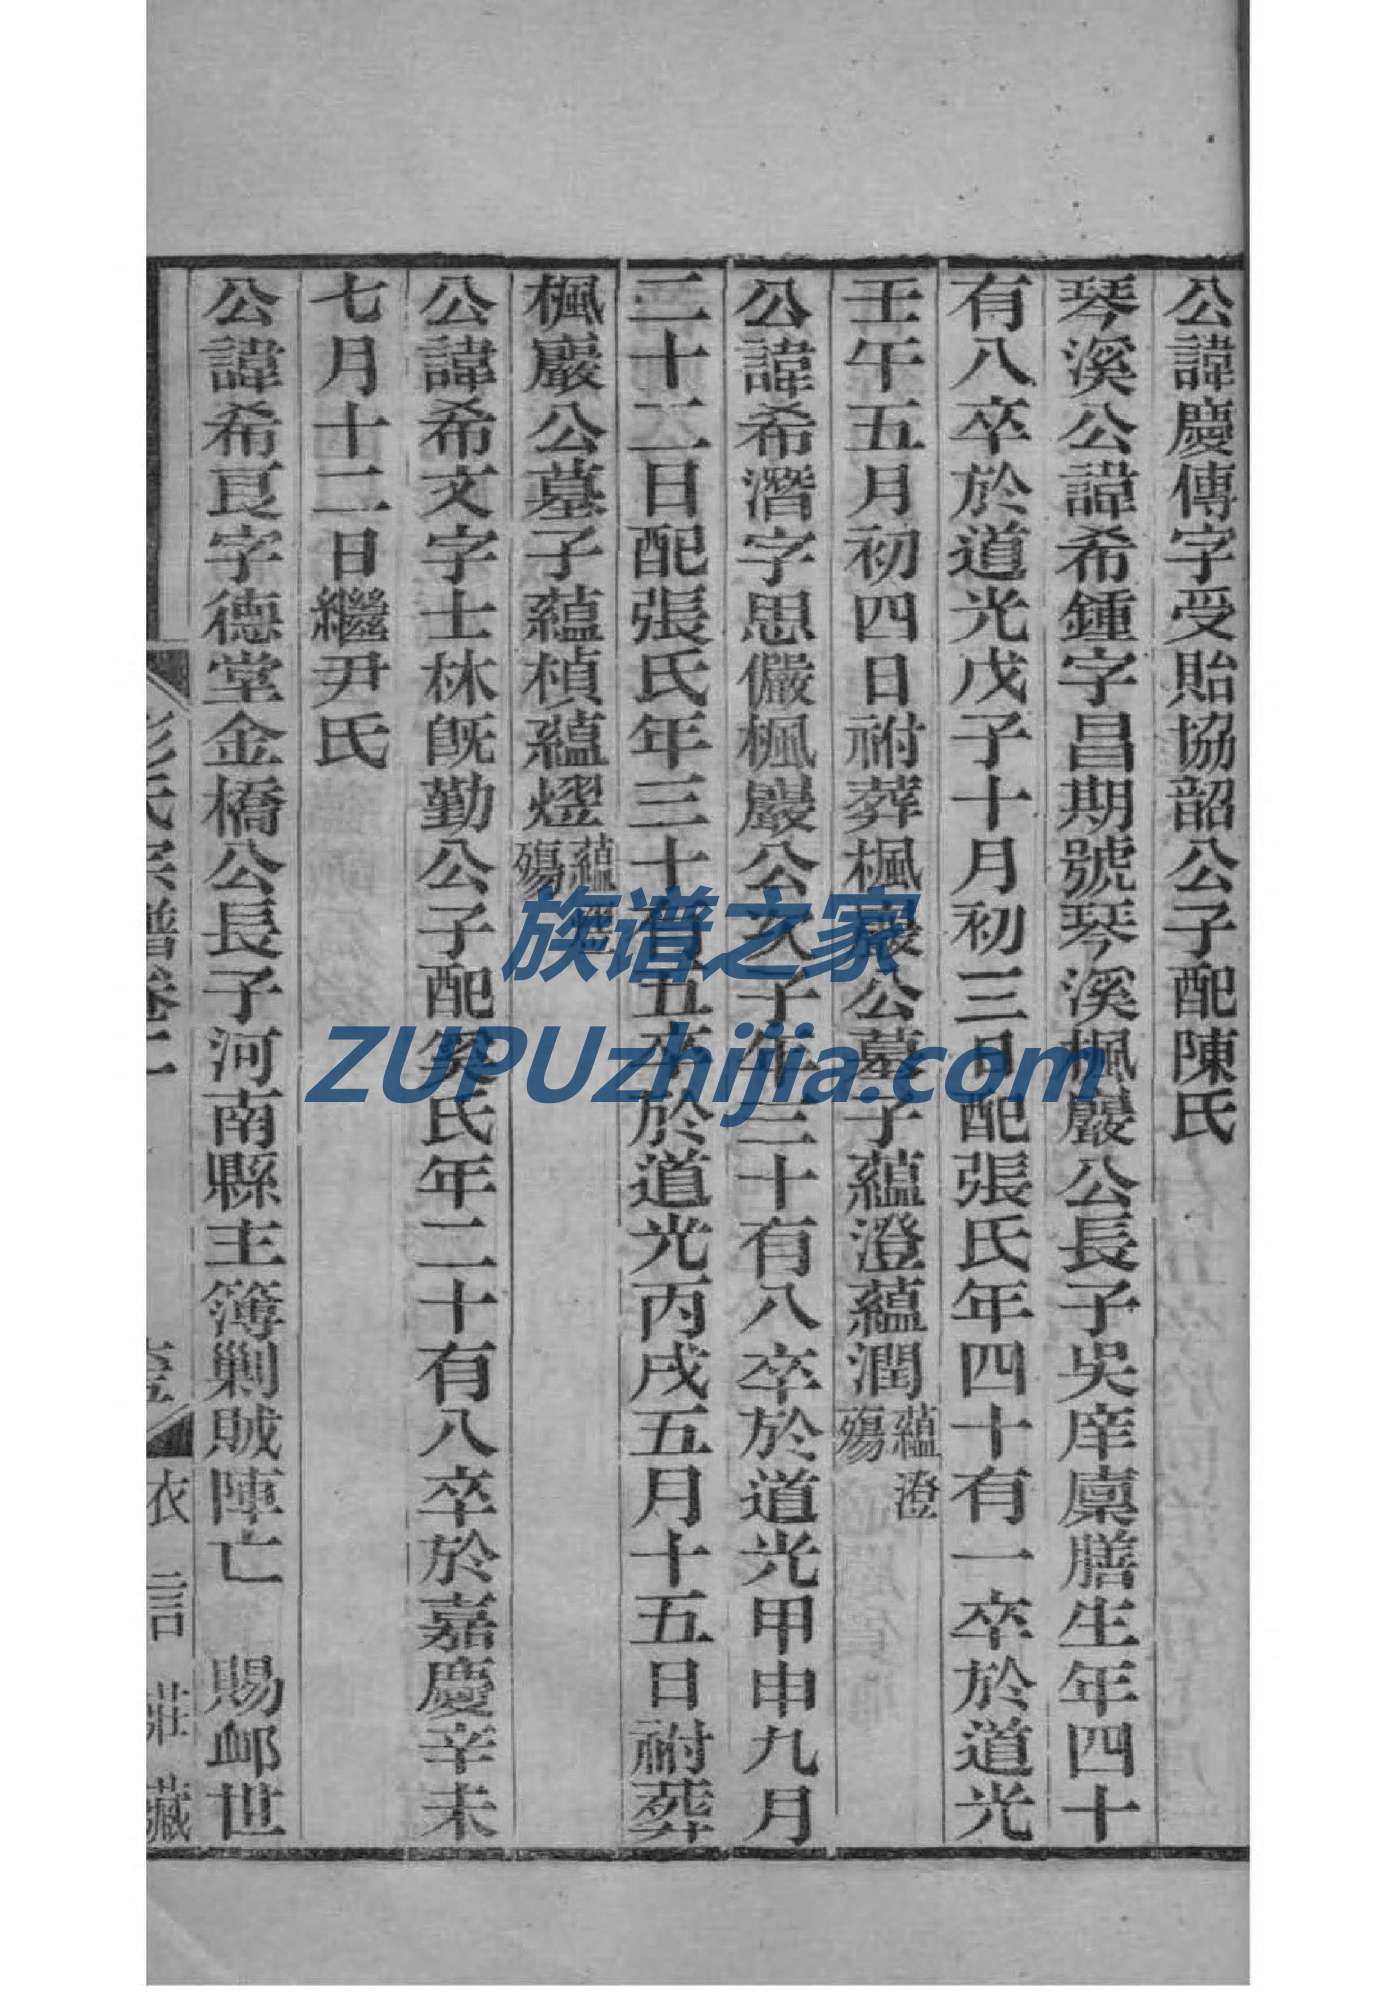 公諱慶傳字受貽協韶公子配陳氏
琴溪公諱希鍾字昌期號琴溪楓巖公長子吳庠廩膳生年四十
有八卒於道光戊子十月初三日配張氏年四十有一卒於道光
壬午五月初四日祔葬楓巖公墓子蘊澄蘊潤蘊澄殤
公諱希潛字思儼楓巖公次子年三十有八卒於道光甲申九月
二十二日配張氏年三十有五卒於道光丙戌五月十五日祔葬
楓巖公墓子蘊楨蘊熤殤
公諱希文字士林旣勤公子配吳氏年二十有八卒於嘉慶辛未
七月十二日繼尹氏
公諱希良字德堂金橋公長子河南縣主簿剿賊陣亡 賜卹世
彭氏宗譜卷二
衣言莊藏
族谱之家
ZUPUzhijia.com